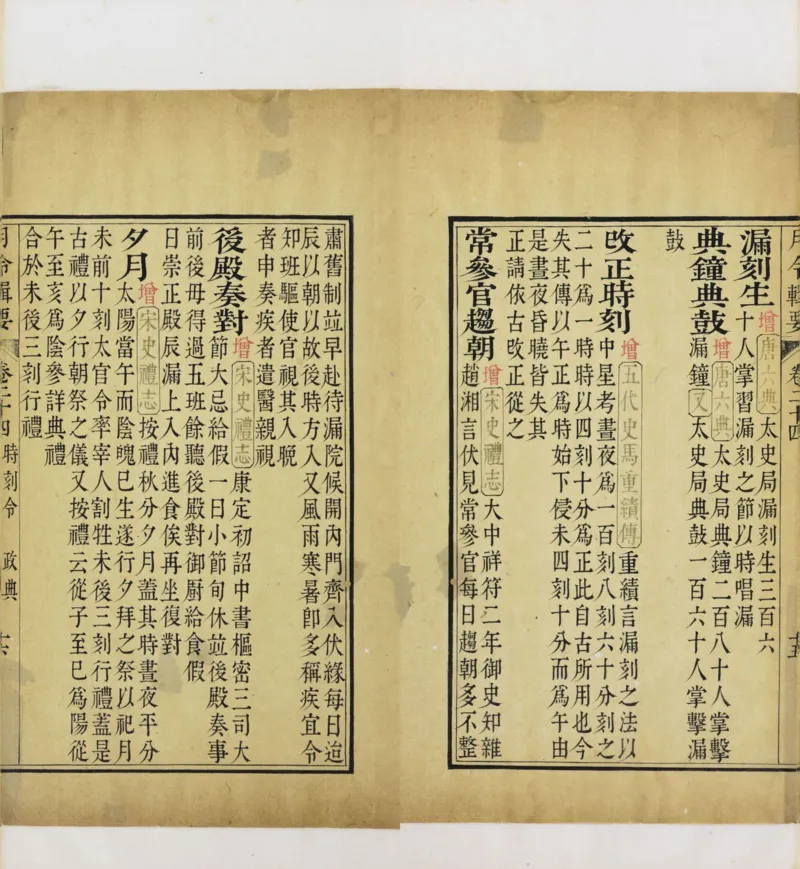 月令輯要 卷二十四
漏刻生 增 唐六典 太史局漏刻生三百六
十人掌習漏刻之節以時唱漏
典鐘典鼓 增 唐六典 太史局典鐘二百八十人掌擊
漏鐘 又 太史局典鼓一百六十人掌擊漏
鼓
改正時刻 增 五代史馬重績傳 重績言漏刻之法以
中星考晝夜爲一百刻八刻六十分刻之
二十爲一時時以四刻十分爲正此自古所用也今
失其傳以午正爲時始下侵未四刻十分而爲午由
是晝夜昏曉皆失其
正請依古改正從之
常參官趨朝 增 宋史禮志 大中祥符二年御史知雜
趙湘言伏見常參官每日趨朝多不整
肅舊制竝早赴待漏院候開內門齊入伏緣每日迨
辰以朝以故後時方入又風雨寒暑卽多稱疾宜令
知班驅使官視其入晚
者申奏疾者遣醫親視
後殿奏對 增 宋史禮志 康定初詔中書樞密三司大
節大忌給假一日小節旬休竝後殿奏事
前後毋得過五班餘聽後殿對御厨給食假
日崇正殿辰漏上入內進食俟再坐復對
夕月 增 宋史禮志 按禮秋分夕月蓋其時晝夜平分
太陽當午而陰魄已生遂行夕拜之祭以祀月
未前十刻太官令率宰人割牲未後三刻行禮蓋是
古禮以夕行朝祭之儀又按禮云從子至巳爲陽從
午至亥爲陰參詳典禮
合於未後三刻行禮
月令輯要 卷二十四 時刻令 政典 十六